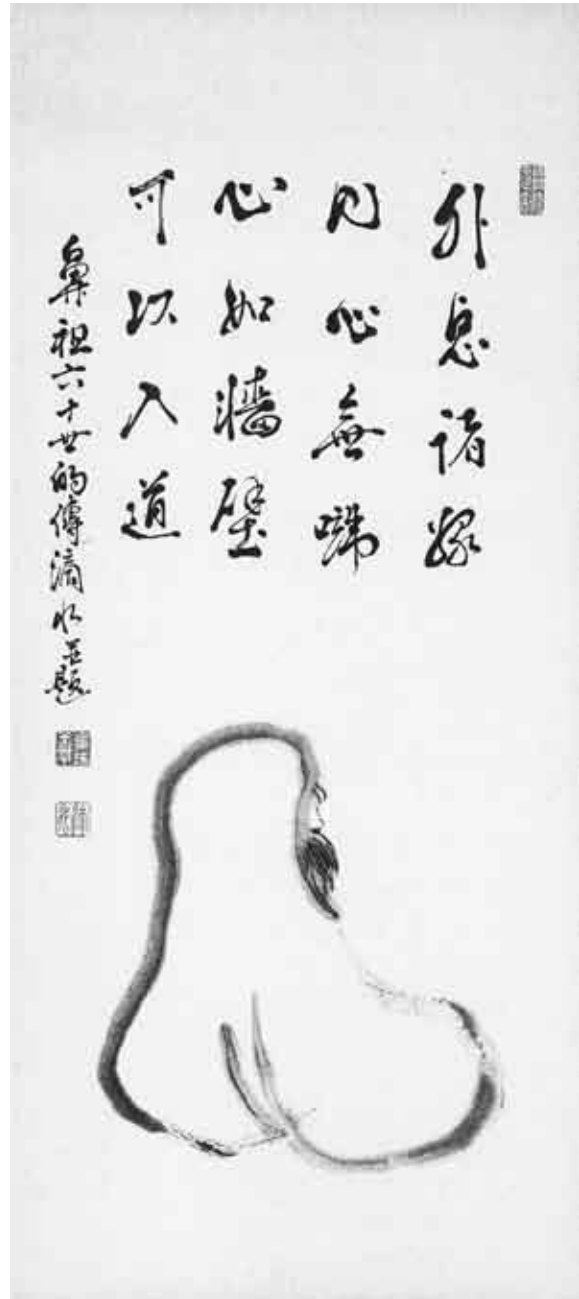 外息諸縁
内心無喘
心如牆壁
可以入道
鼻祖六十世的傳滴水並題